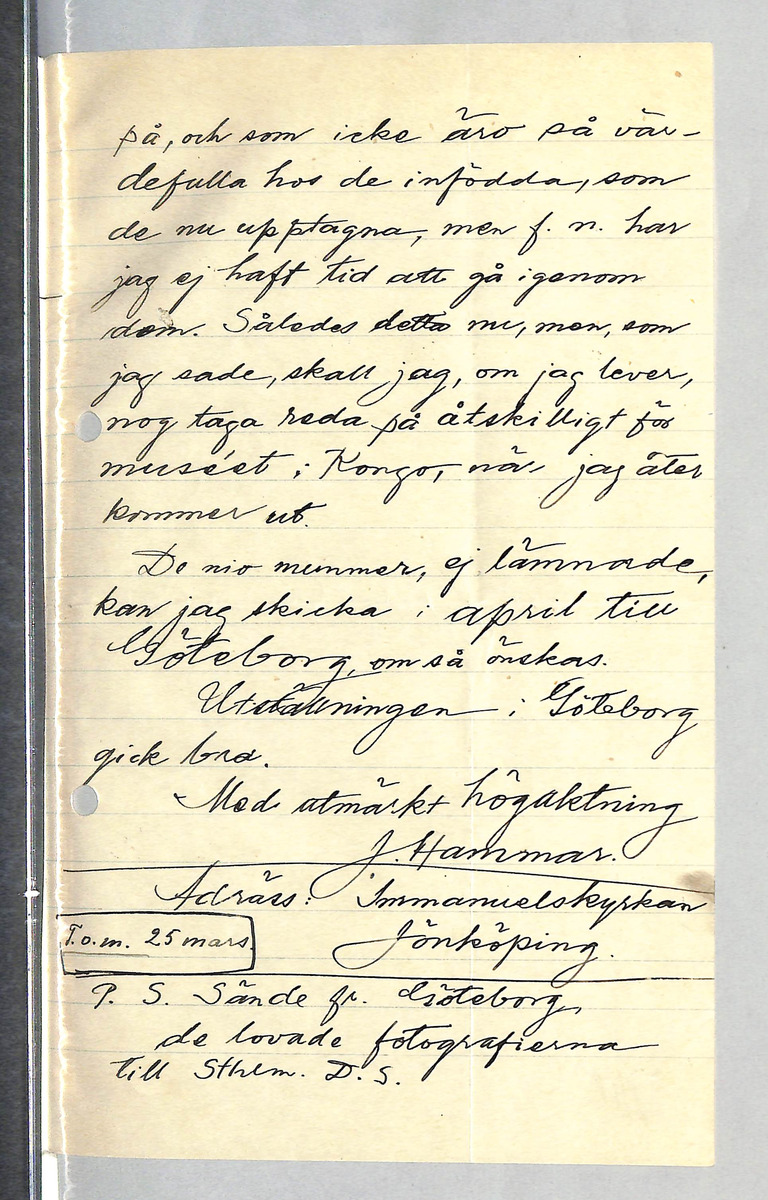 på, och som icke äro så vär-
defulla hos de infödda, som
de nu upptagna, men f. n. har
jag ej haft tid att gå igenom
dem. Således detta nu, men, som
jag sade, skall jag, om jag lever,
nog taga reda på åtskilligt för
muséet i Kongo, när jag åter
kommer ut.
De nio nummer, ej lämnade,
kan jag skicka i april till
Göteborg, om så önskas.
Utställningen i Göteborg
gick bra.
Med utmärkt högaktning
J. Hammar.
Adräss: Immanuelskyrkan
T.o.m. 25 mars. Jönköping.
P. S. Sände fr. Göteborg,
de lovade fotografierna
till Sthlm. D. S.